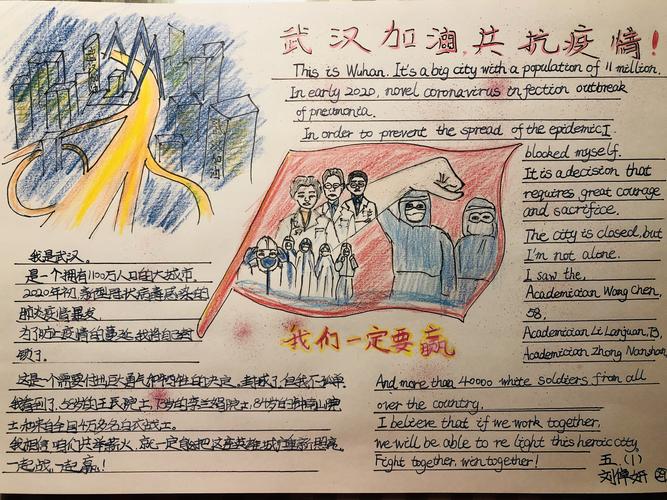 武汉加油,共抗疫情!
This is Wuhan. It's a big city with a population of 11 million.
In early 2020, novel coronavirus in fection outbreak
of pneumonia.
In order to prevent the spread of the epidemic,I
blocked myself.
It is a decision that
requires great courage
and sacrifice.
The city is closed, but
I'm not alone.
I saw the,
Academician Wang Chen,
58,
Academician Li Lanjuan, 73,
Academician Zhong Nanshan,
And more than 40000 white soldiers from all
over the country.
I believe that if we work together,
we will be able to re light this heroic city.
Fight together, win together!
我是武汉。
是一个拥有1100万人口的大城市.
2020年初,新型冠状病毒感染的
肺炎疫情暴发.
为了防止疫情的蔓延,我将自己封
锁了.
这是一个需要付出巨大勇气和牺牲的决定。封城了,但我不孤单.
我看到了,58岁的王辰院士,73岁的李兰娟院士,84岁的钟南山院
士,和来自全国4万多名白衣战士。
我相信,咱们共举薪火,就一定能把这座英雄城市重新照亮.
一起战,一起赢!
我们一定要赢
五(1)